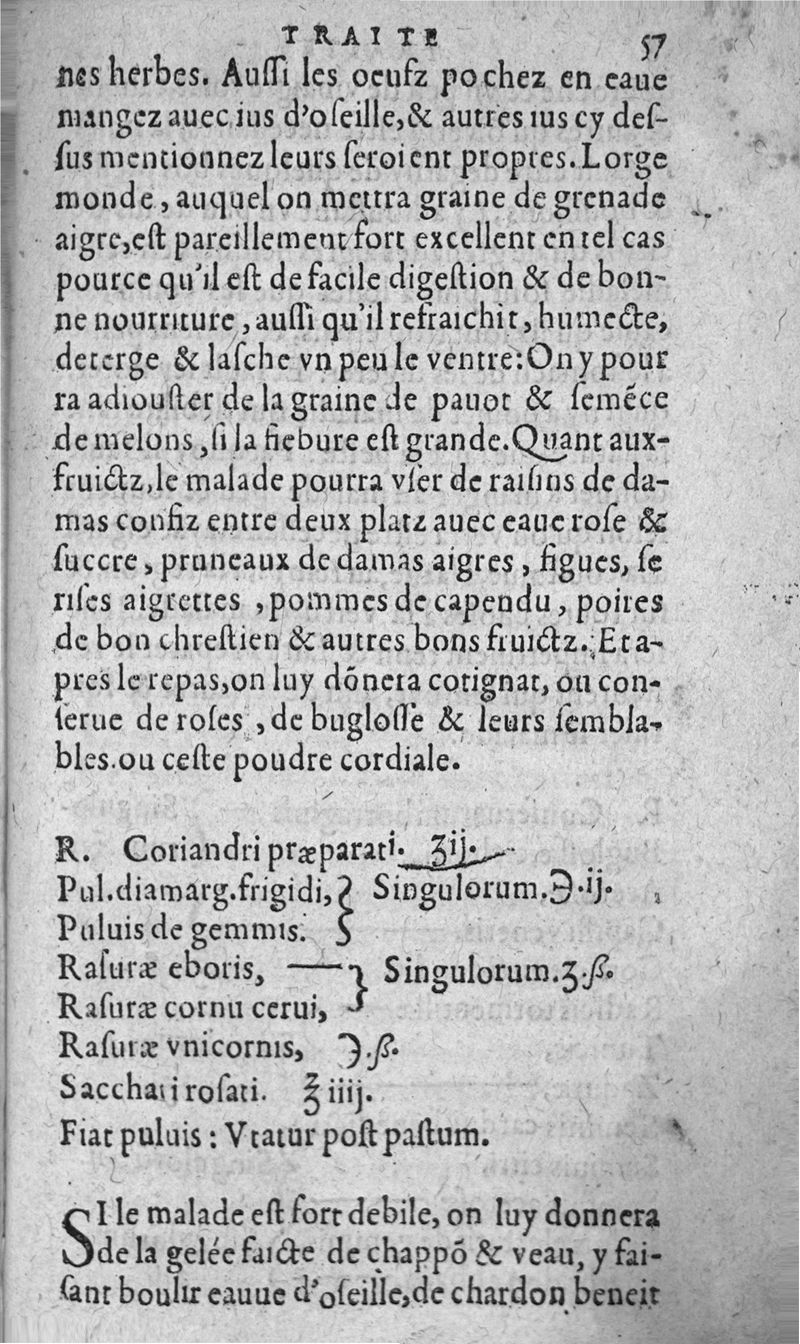 TRAITE 57
nes herbes. Auſſi les oeufz pochez en eaue
mangez auec ius d'oſeille,& autres ius cy deſ-
ſus mentionnez leurs ſeroient propres. Lorge
monde, auquel on mettra graine de grenade
aigre, eſt pareillement fort excellent en tel cas
pource qu'il eſt de facile digeſtion & de bon-
ne nourriture, auſſi qu'il refraichit, humecte,
deterge & laſche vn peu le ventre: On y pour
ra adiouſter de la graine de pauot & ſemẽce
de melons, ſi la fiebure eſt grande. Quant aux-
fruictz, le malade pourra vſer de raiſins de da-
mas confiz entre deux platz auec eaue roſe &
ſuccre, pruneaux de damas aigres, figues, ſe
riſes aigrettes, pommes de capendu, poires
de bon chreſtien & autres bons fruictz. Et a-
pres le repas, on luy dõnera cotignat, ou con-
ſerue de roſes, de bugloſſe & leurs ſembla-
bles. ou ceſte poudre cordiale.
R. Coriandri præparati. ʒij.
Pul. diamarg. frigidi, } Singulorum. ℈.ij.
Puluis de gemmis.
Raſuræ eboris, — } Singulorum. ʒ.ß.
Raſuræ cornu cerui,
Raſuræ vnicornis, ℈.ß.
Sacchari roſati. ℥ iiij.
Fiat puluis: Vtatur poſt paſtum.
SI le malade eſt fort debile, on luy donnera
de la gelée faicte de chappõ & veau, y fai-
ſant boulir eauue d'oſeille, de chardon beneit